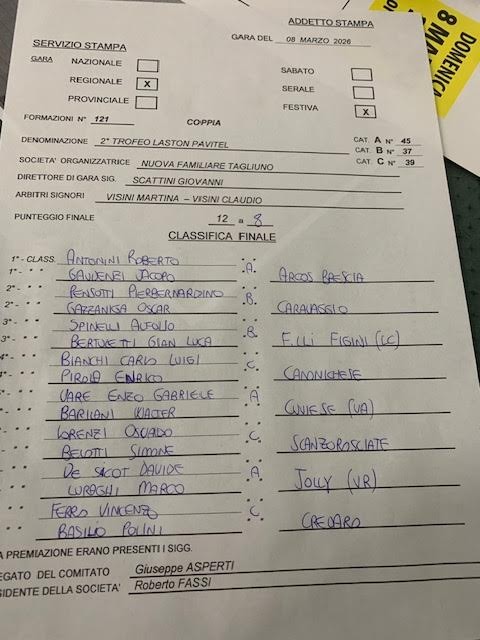 ADDETTO STAMPA
DOMENICA
8 MAR
SERVIZIO STAMPA
GARA DEL 08 MARZO 2026
GARA NAZIONALE
REGIONALE X
PROVINCIALE
SABATO
SERALE
FESTIVA X
FORMAZIONI N° 121 COPPIA
DENOMINAZIONE 2° TROFEO LASTON PAVITEL
CAT. A N° 45
CAT. B N° 37
CAT. C N° 39
SOCIETA' ORGANIZZATRICE NUOVA FAMILIARE TAGLIUNO
DIRETTORE DI GARA SIG. SCATTINI GIOVANNI
ARBITRI SIGNORI VISINI MARTINA – VISINI CLAUDIO
PUNTEGGIO FINALE 12 a 8
CLASSIFICA FINALE
1° - CLASS. ANTONINI ROBERTO
1° - " " GAUDENZI JACOPO .A. ARCOS BRESCIA
2° - " " PENSOTTI PIERBERNARDINO
2° - " " GAZZANIGA OSCAR .B. CARAVAGGIO
3° - " " SPINELLI
3° - " " GIAN LUCA .B. F.LLI FIGINI (LC)
4° - " " BIANCHI CARLO LUIGI
4° - " " PIROLA ENRICO .C. CANONICHESE
" " VARE ENZO GABRIELE
" " WALTER A CUVIESE (VA)
" " LORENZI OSVALDO
" " BELOTTI SIMONE .C. SCANZOROSCIATE
" " DE SICOT DAVIDE
" " LURAGHI MARCO .A. JOLLY (VR)
" " FERRO VINCENZO
" " BASILIO POLINI C CREDARO
A PREMIAZIONE ERANO PRESENTI I SIGG.
EGATO DEL COMITATO Giuseppe ASPERTI
SIDENTE DELLA SOCIETA' Roberto FASSI